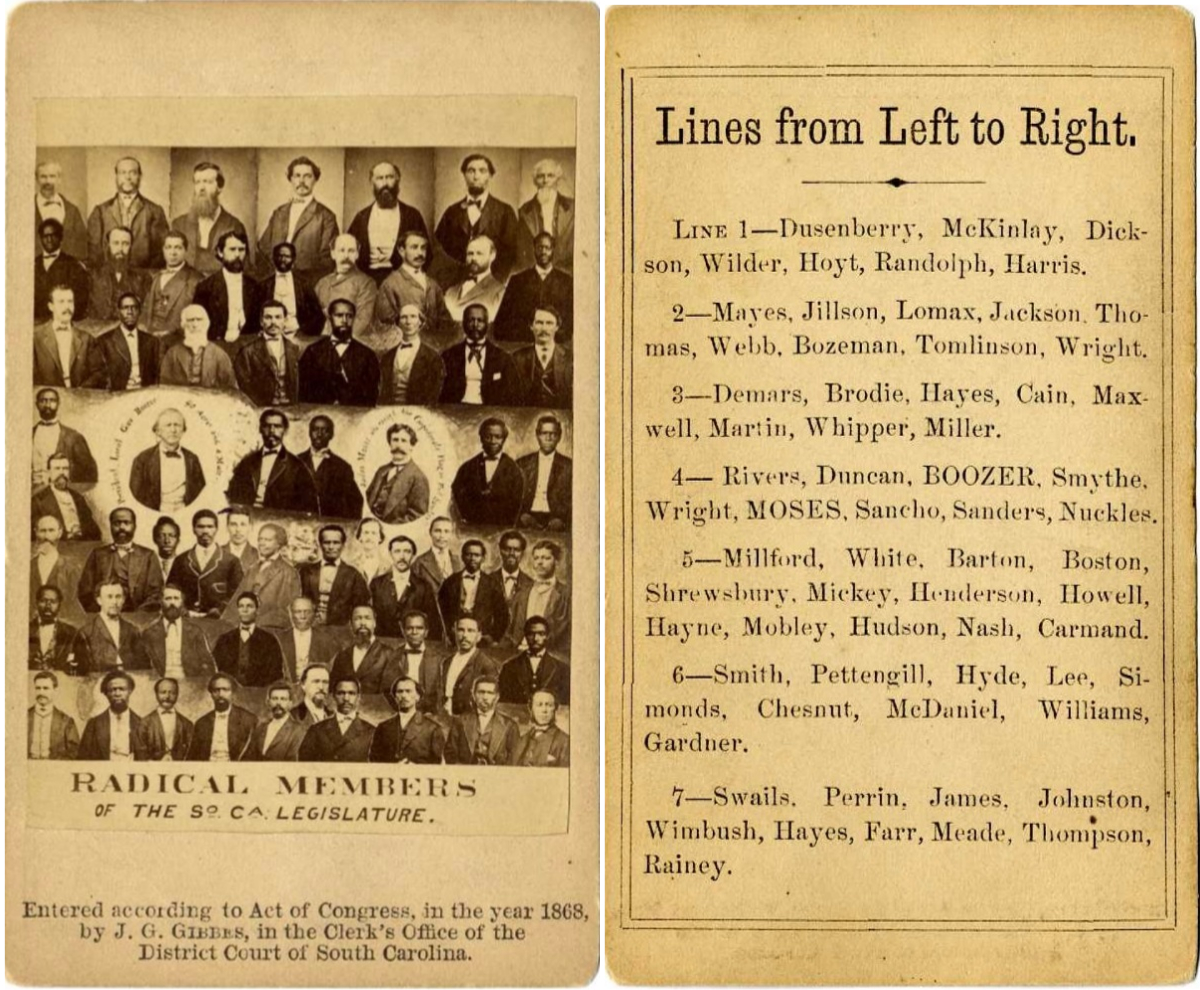 RADICAL MEMBERS
OF THE SO. CA. LEGISLATURE.
Entered according to Act of Congress, in the year 1868,
by J. G. GIBBES, in the Clerk's Office of the
District Court of South Carolina.
Lines from Left to Right.
LINE 1—Dusenberry, McKinlay, Dick-
son, Wilder, Hoyt, Randolph, Harris.
2—Mayes, Jillson, Lomax, Jackson, Tho-
mas, Webb, Bozeman, Tomlinson, Wright.
3—Demars, Brodie, Hayes, Cain, Max-
well, Martin, Whipper, Miller.
4— Rivers, Duncan, BOOZER, Smythe,
Wright, MOSES, Sancho, Sanders, Nuckles.
5—Millford, White, Barton, Boston,
Shrewsbury, Mickey, Henderson, Howell,
Hayne, Mobley, Hudson, Nash, Carmand.
6—Smith, Pettengill, Hyde, Lee, Si-
monds, Chesnut, McDaniel, Williams,
Gardner.
7—Swails, Perrin, James, Johnston,
Wimbush, Hayes, Farr, Meade, Thompson,
Rainey.